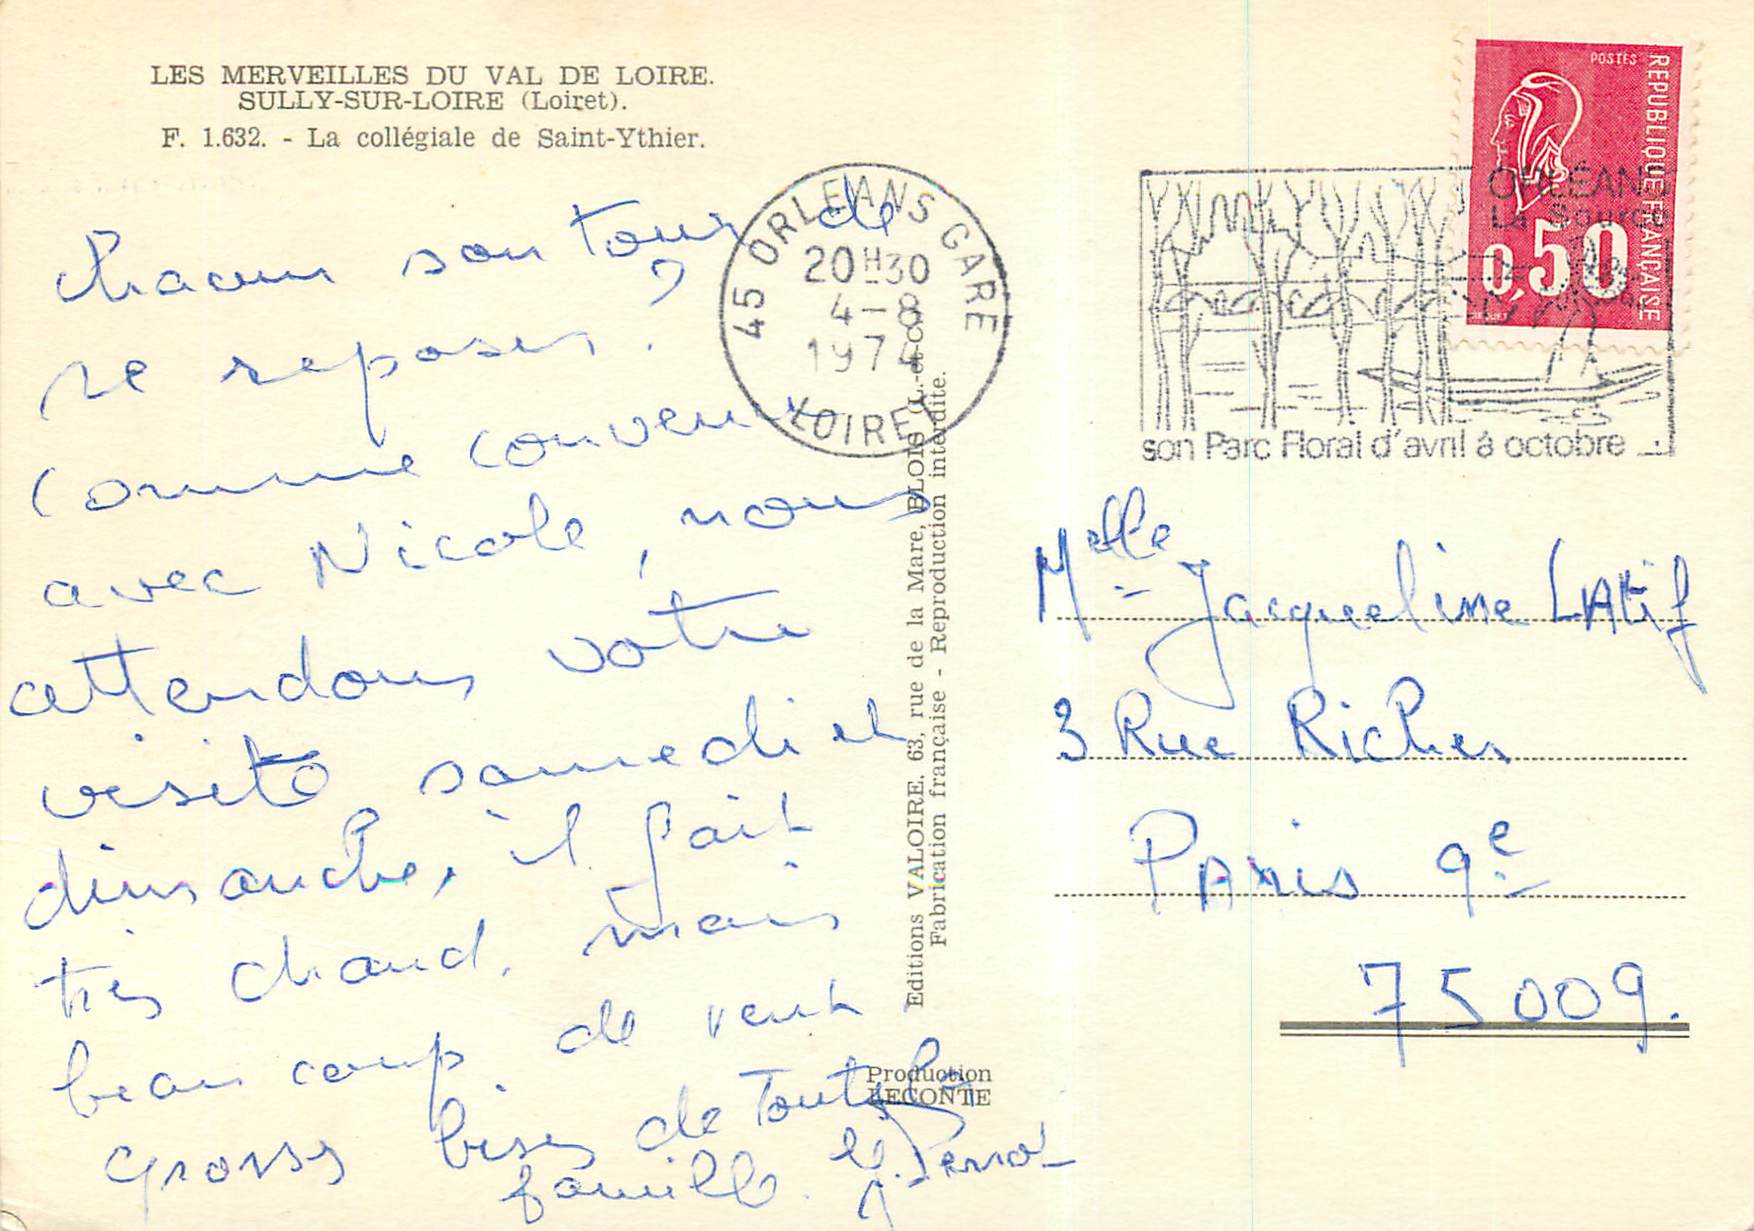 LES MERVEILLES DU VAL DE LOIRE.
SULLY-SUR-LOIRE (Loiret).
F. 1.632. - La collégiale de Saint-Ythier.
chacun son tour de
se reposer ?
Comme convenu
avec Nicole, nous
attendons votre
visite samedi et
dimanche, il fait
très chaud, mais
beau coup de vent
grosses bises de Toute la
famille.
45 ORLEANS GARE
20H30
4-8
1974
LOIRET
POSTES
REPUBLIQUE FRANÇAISE
0,50
ORLÉANS
La Source
son Parc Floral d'avril à octobre
Editions VALOIRE, 63, rue de la Mare, BLOIS (L.-et-C.)
Fabrication française - Reproduction interdite.
Production
LECONTE
Melle Jacqueline LAtif
3 Rue Richer
PAris 9e
75009.